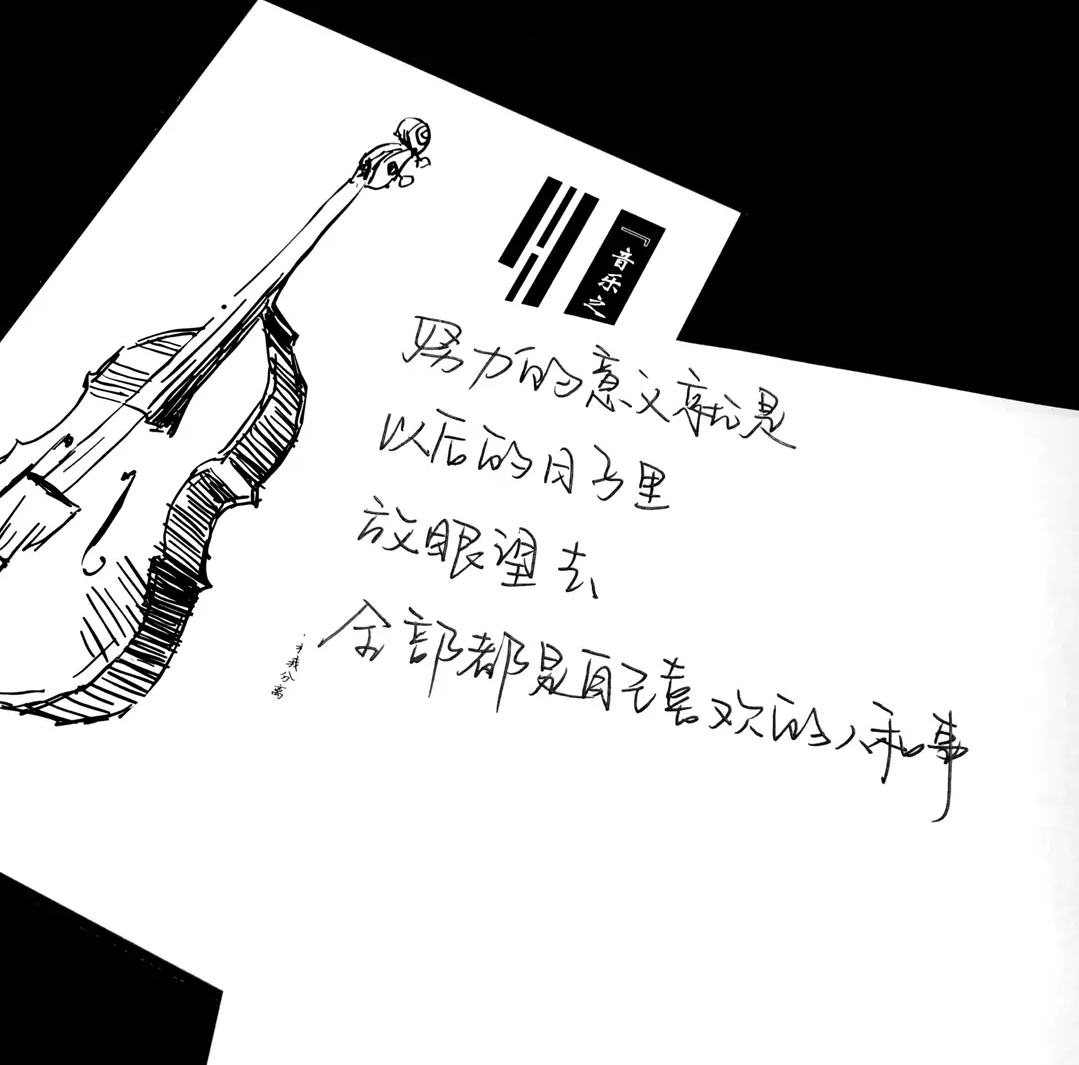 『音乐之
努力的意义就是
以后的日子里
放眼望去
全部都是自己喜欢的人和事
我分离